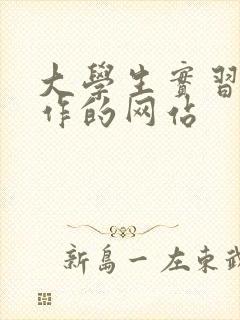 大學生實習
作的网佔
新島一左東武